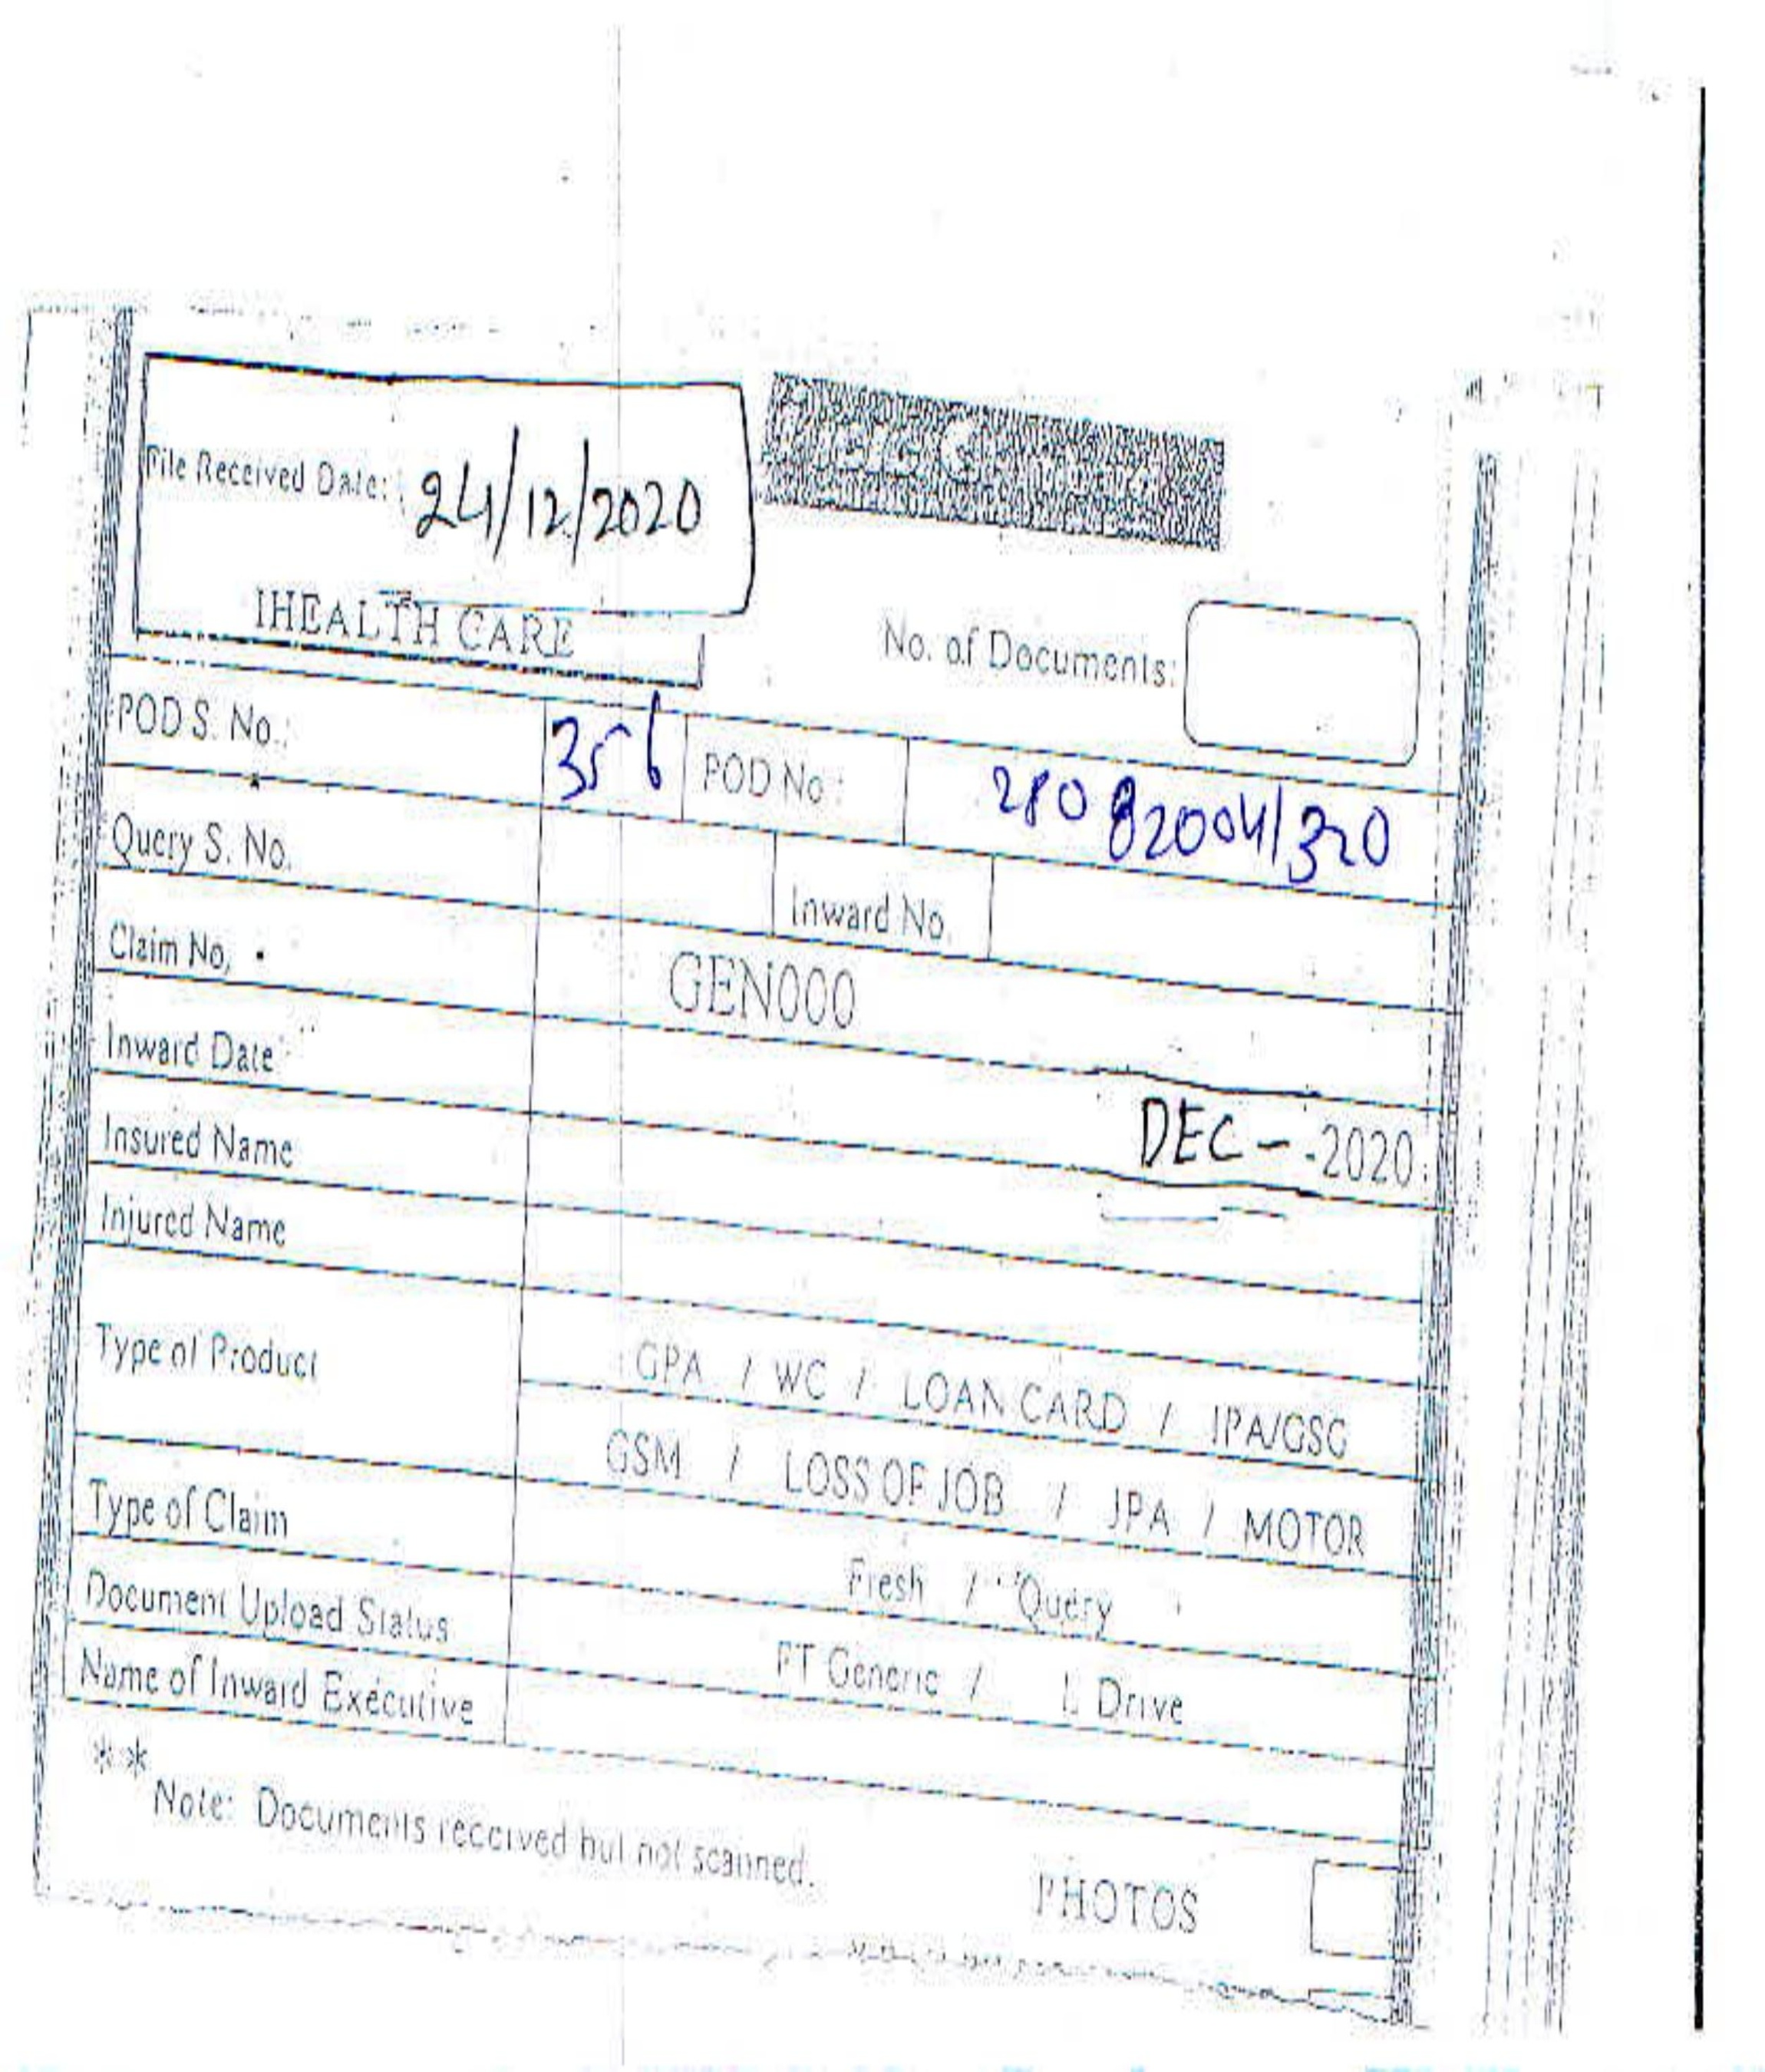 File Received Date: 24/12/2020
IHEALTH CARE
No. of Documents:
POD S. No.: 356 POD No: 28082004/320
Query S. No. Inward No.
Claim No. GEN000
Inward Date DEC - 2020
Insured Name
Injured Name
Type of Product GPA / WC / LOAN CARD / IPA/GSG
GSM / LOSS OF JOB / JPA / MOTOR
Type of Claim Fresh / Query
Document Upload Status FT Generic / Drive
Name of Inward Executive
** Note: Documents received but not scanned.
PHOTOS